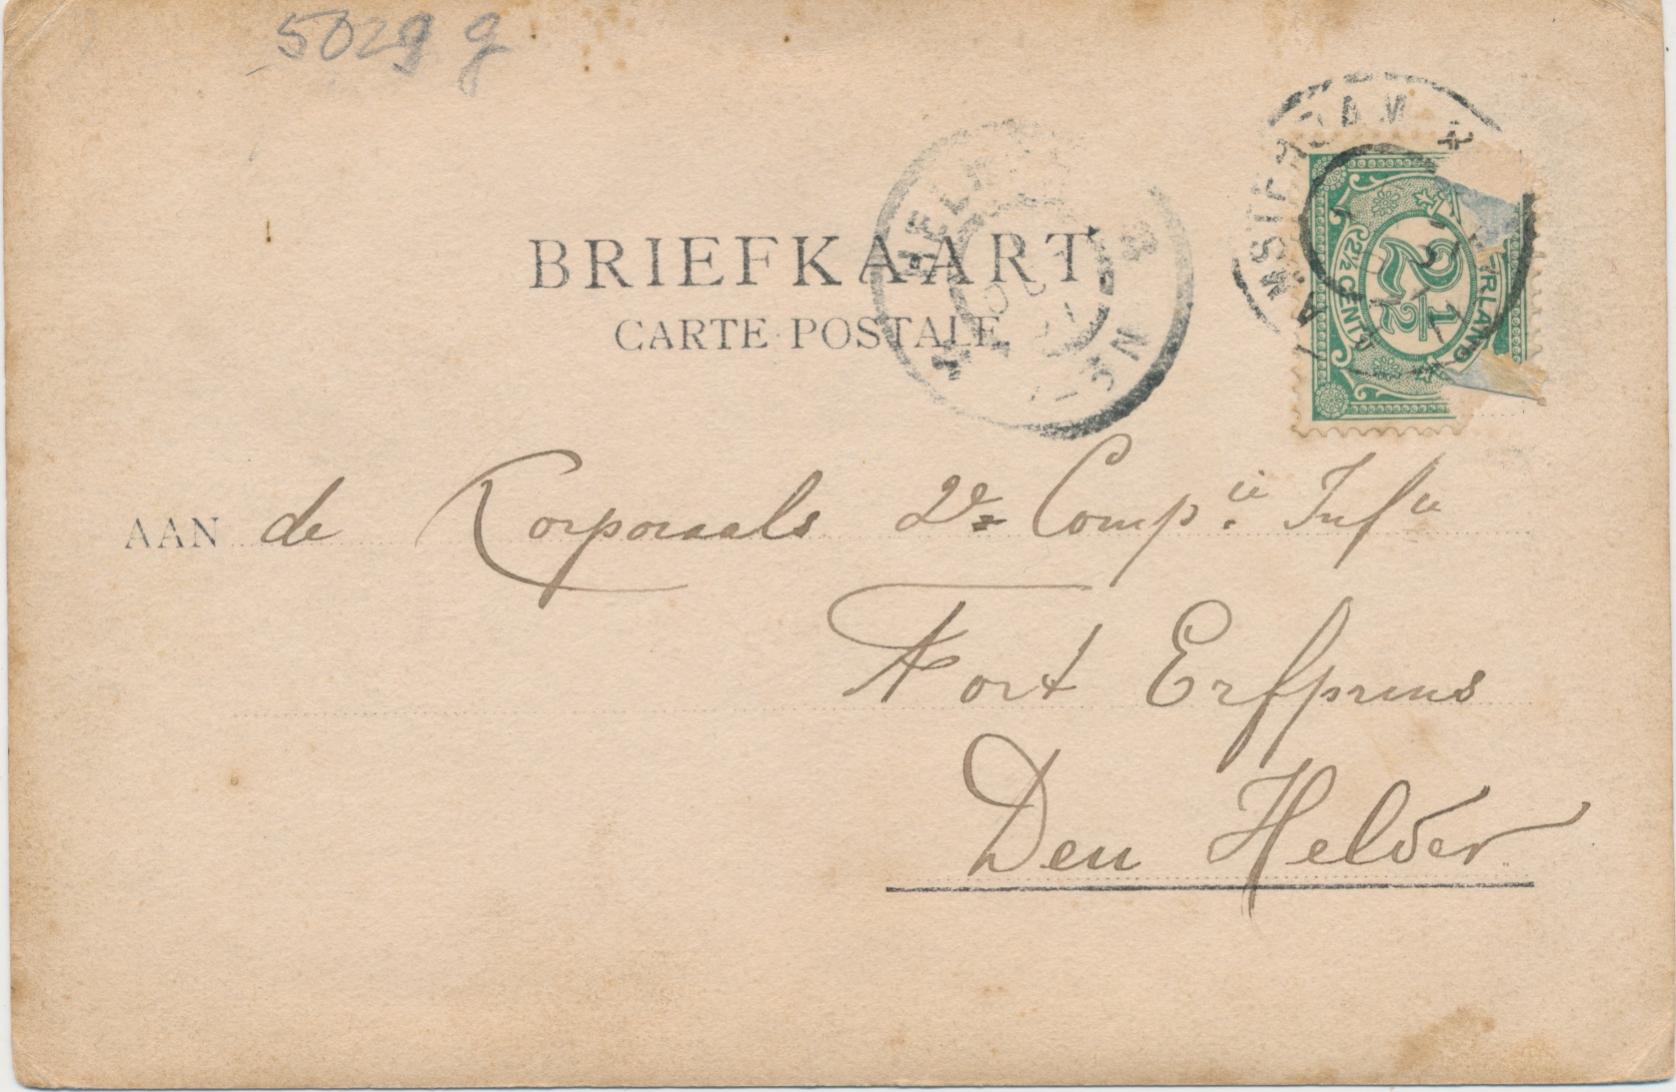 5029 g
BRIEFKAART
CARTE POSTALE
AMSTERDAM
HELDER
2½ CENT
2½
AAN de Korporaals 2e Compie Infie
Fort Erfprins
Den Helder